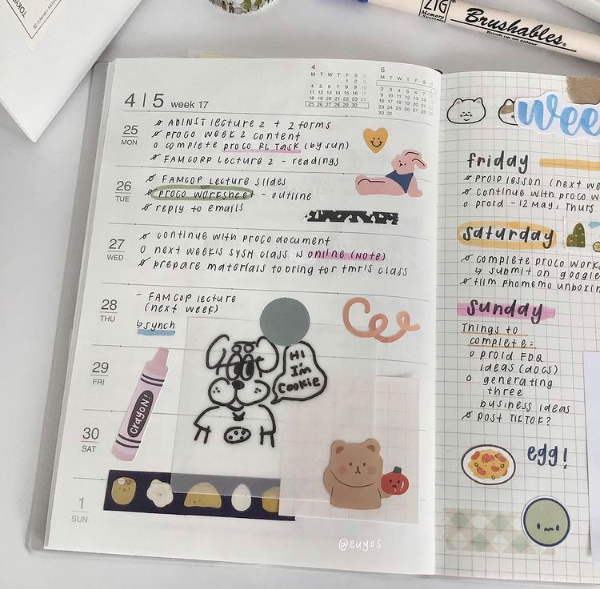 ZIG
Brushables
4 | 5 week 17
4
M T W T F S S
5
M T W T F S S
25
MON
ADINST lecture 2 + 2 forms
proco week 2 content
complete proco RL TASK (by sun)
FAMCORP lecture 2 - readings
26
TUE
FAMCOP lecture slides
proco worksheet - outline
reply to emails
27
WED
continue with proco document
next week's sysh class is online (note)
prepare materials to bring for tmr's class
28
THU
- FAMCOP lecture
(next week)
↳ synch
29
FRI
CRAYON!
Hi
I'm
Cookie
30
SAT
1
SUN
@euyos
wee
friday
proid lesson (next we
continue with proco w
proid - 12 may, thurs
saturday
complete proco works
↳ submit on google
film phomemo unboxin
sunday
Things to
complete:
proid FDQ
ideas (docs)
generating
three
business ideas
post TIKTOK?
egg!